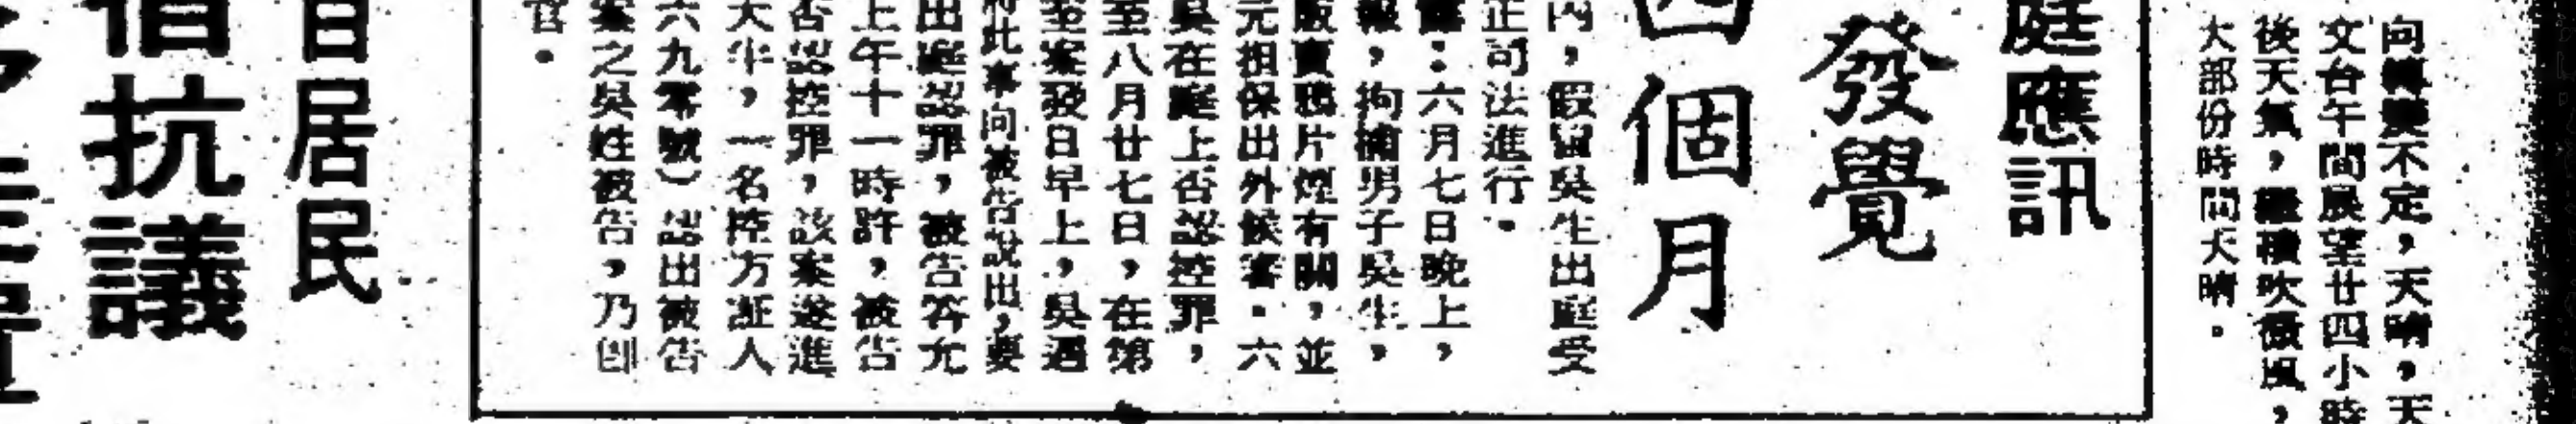 向轉變不定，天晴，天
文台午間展望廿四小時
後天氣，繼續吹微風，
大部份時間天晴。
庭應訊
發覺
四個月
內，假冒吳生出庭受
正司法進行。
：六月七日晚上，
報，拘捕男子吳生，
販賣鴉片煙有關，並
元担保出外候審。六
吳在庭上否認控罪，
至八月廿七日，在第
至案發日早上，吳遇
將此事向被告說出，要
出庭認罪，被告答允
上午十一時許，被告
否認控罪，該案遂進
大半，一名控方証人
六九零號）認出被告
案之吳姓被告，乃即
官。
日居民
宿抗議